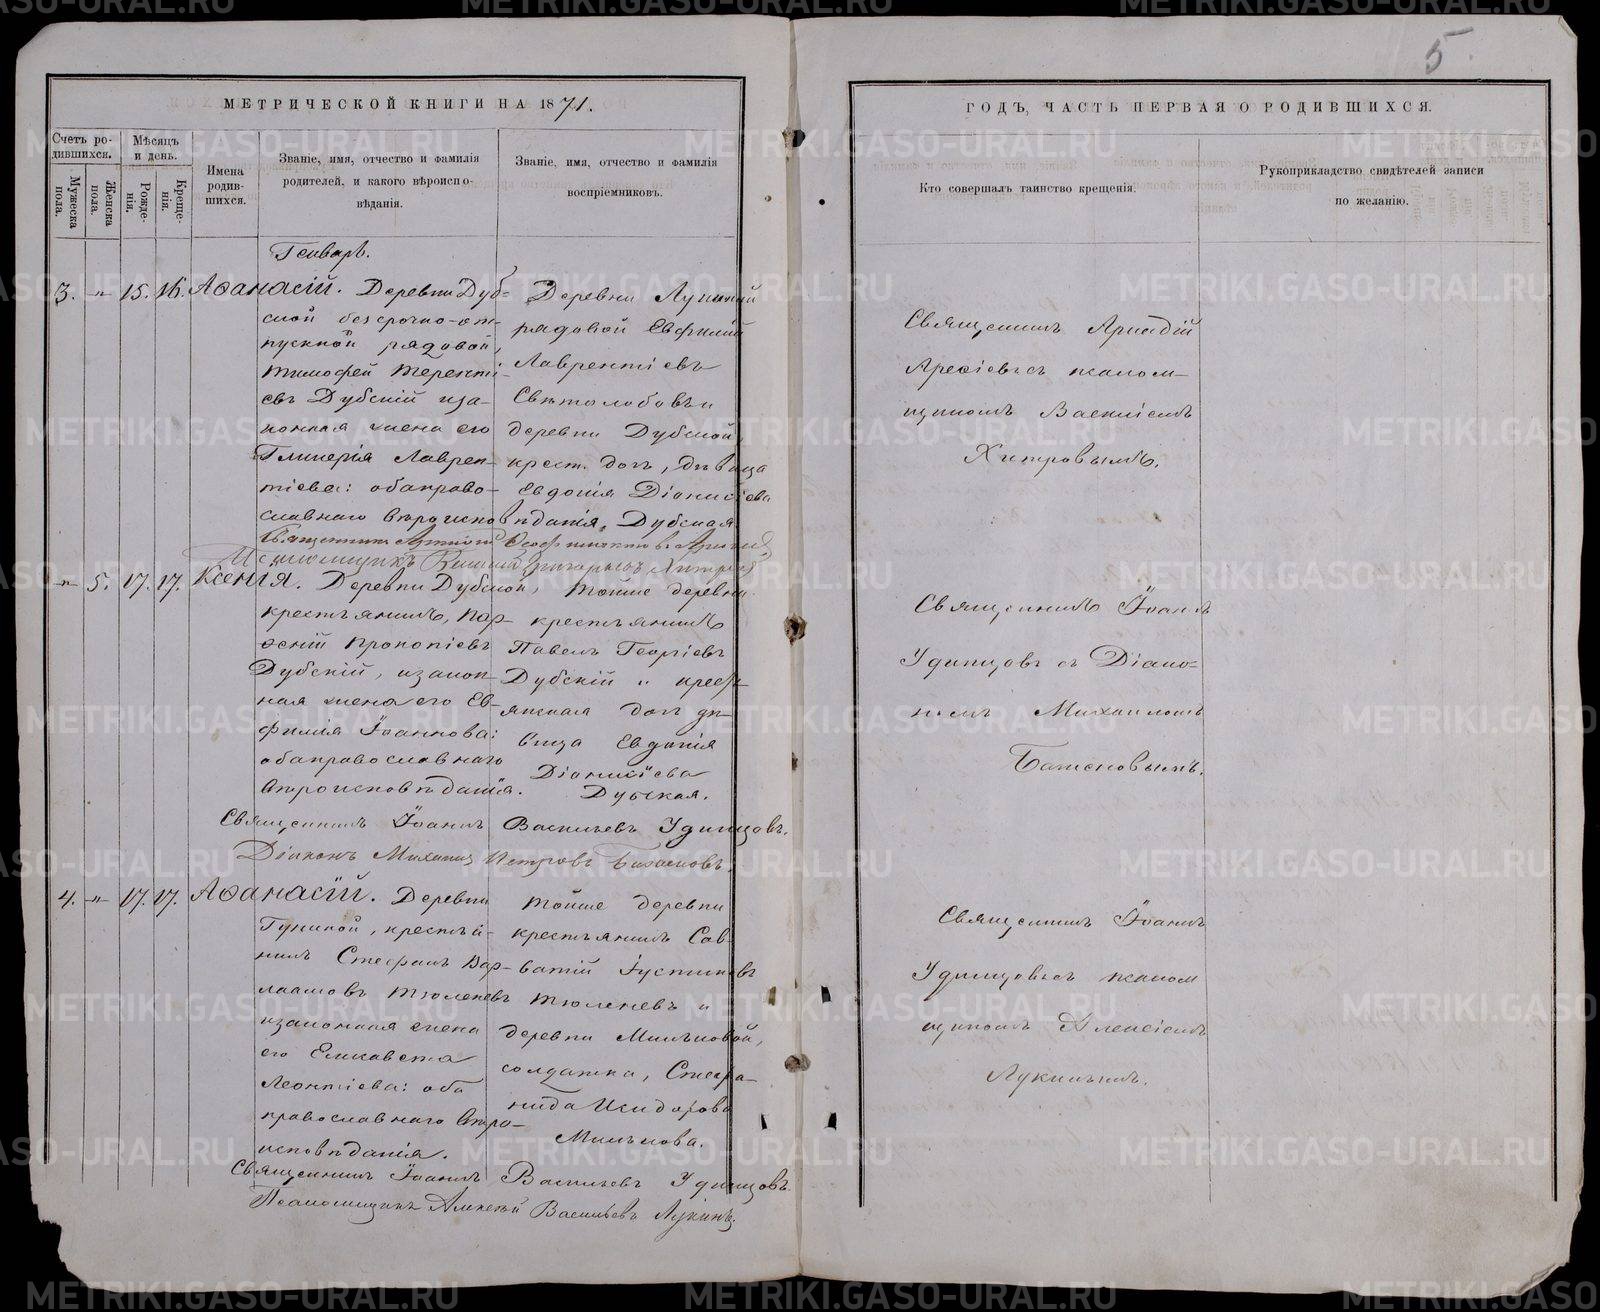 5
МЕТРИЧЕСКОЙ КНИГИ НА 1871.
Счетъ родившихся.
Мужеска пола.
Женска пола.
Мѣсяцъ и день.
Рожденія.
Крещенія.
Имена родившихся.
Званіе, имя, отчество и фамилія
родителей, и какого вѣроиспо-
вѣданія.
Званіе, имя, отчество и фамилія
воспріемниковъ.
Генварь.
3. „ 15. 16. Аѳанасій.
Деревни Дуб=
ской безсрочно-от-
пускной рядовой,
Тимофей Теренті-
евъ Дубскій и за-
конная жена его
Гликерія Лаврен-
тіева: оба право-
славнаго вѣроисповѣданія.
Деревни
рядовой Евфимій
Лаврентіевъ
Свѣтолобовъ и
деревни Дубской,
крест. доч, дѣвица
Евдокія Діонисіева
Дубская
Священникъ
Псаломщикъ Василій Григорьевъ Хитровъ
„ 5. 17. 17. Ксенія.
Деревни Дубской,
крестьянинъ, Пар-
ѳеній Прокопіевъ
Дубскій, и закон-
ная жена его Ев-
фимія Іоаннова:
оба православнаго
вѣроисповѣданія.
Тойже деревни
крестьянинъ
Павелъ Георгіевъ
Дубскій и крест-
янская доч дѣ-
вица Евдокія
Діонисіева
Дубская.
Священникъ Іоаннъ Васильевъ Удинцовъ.
Діаконъ Михаилъ Петровъ Баженовъ.
4. „ 17. 17. Аѳанасій.
Деревни
крестья-
нинъ Стефанъ Вар-
лаамовъ Тюленевъ
и законная жена
его Елисавета
Леонтіева: оба
православнаго вѣро-
исповѣданія.
Тойже деревни
крестьянинъ Сав-
ватій Іустиновъ
Тюленевъ и
деревни Милѣковой,
солдатка, Стефа-
нида Исидорова
Милькова.
Священникъ Іоаннъ Васильевъ Удинцовъ
Псаломщикъ Алексѣй Васильевъ Лукинъ.
ГОДЪ, ЧАСТЬ ПЕРВАЯ О РОДИВШИХСЯ.
Кто совершалъ таинство крещенія.
Рукоприкладство свидѣтелей записи
по желанію.
Священникъ Аркадій
псалом-
щикомъ Василіемъ
Хитровымъ.
Священникъ Іоаннъ
Удинцовъ съ Діако-
номъ Михаиломъ
Баженовымъ.
Священникъ Іоаннъ
Удинцовъ съ псалом
щикомъ Алексіемъ
Лукинымъ.
METRIKI.GASO-URAL.RU